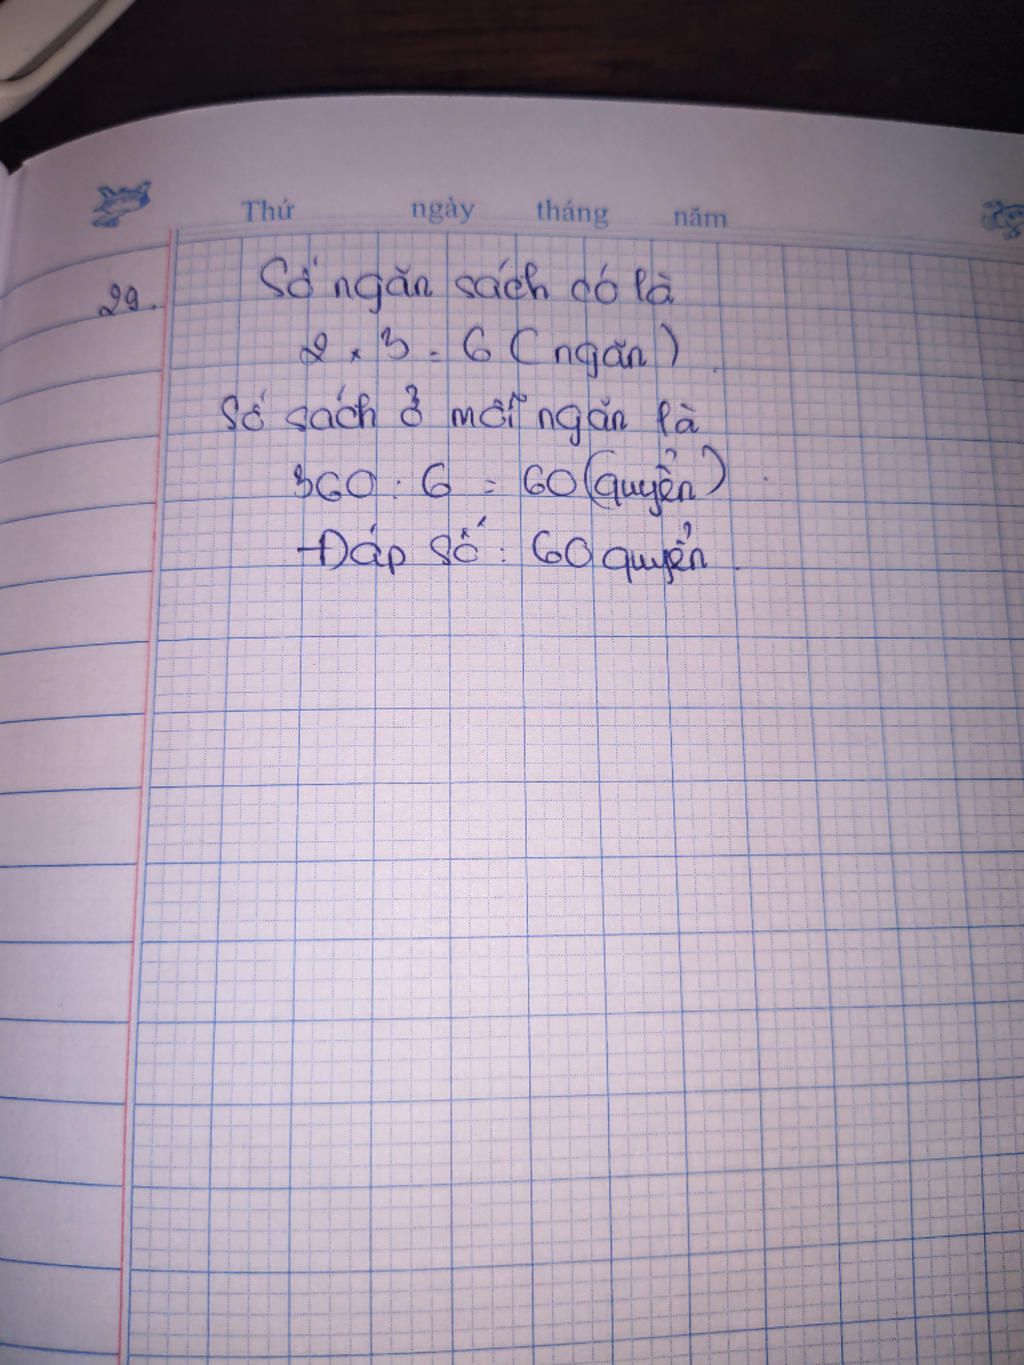 Thứ ngày tháng năm
29. Số ngăn sách có là
2 x 3 = 6 (ngăn)
Số sách ở mỗi ngăn là
360 : 6 = 60 (quyển)
Đáp số : 60 quyển.